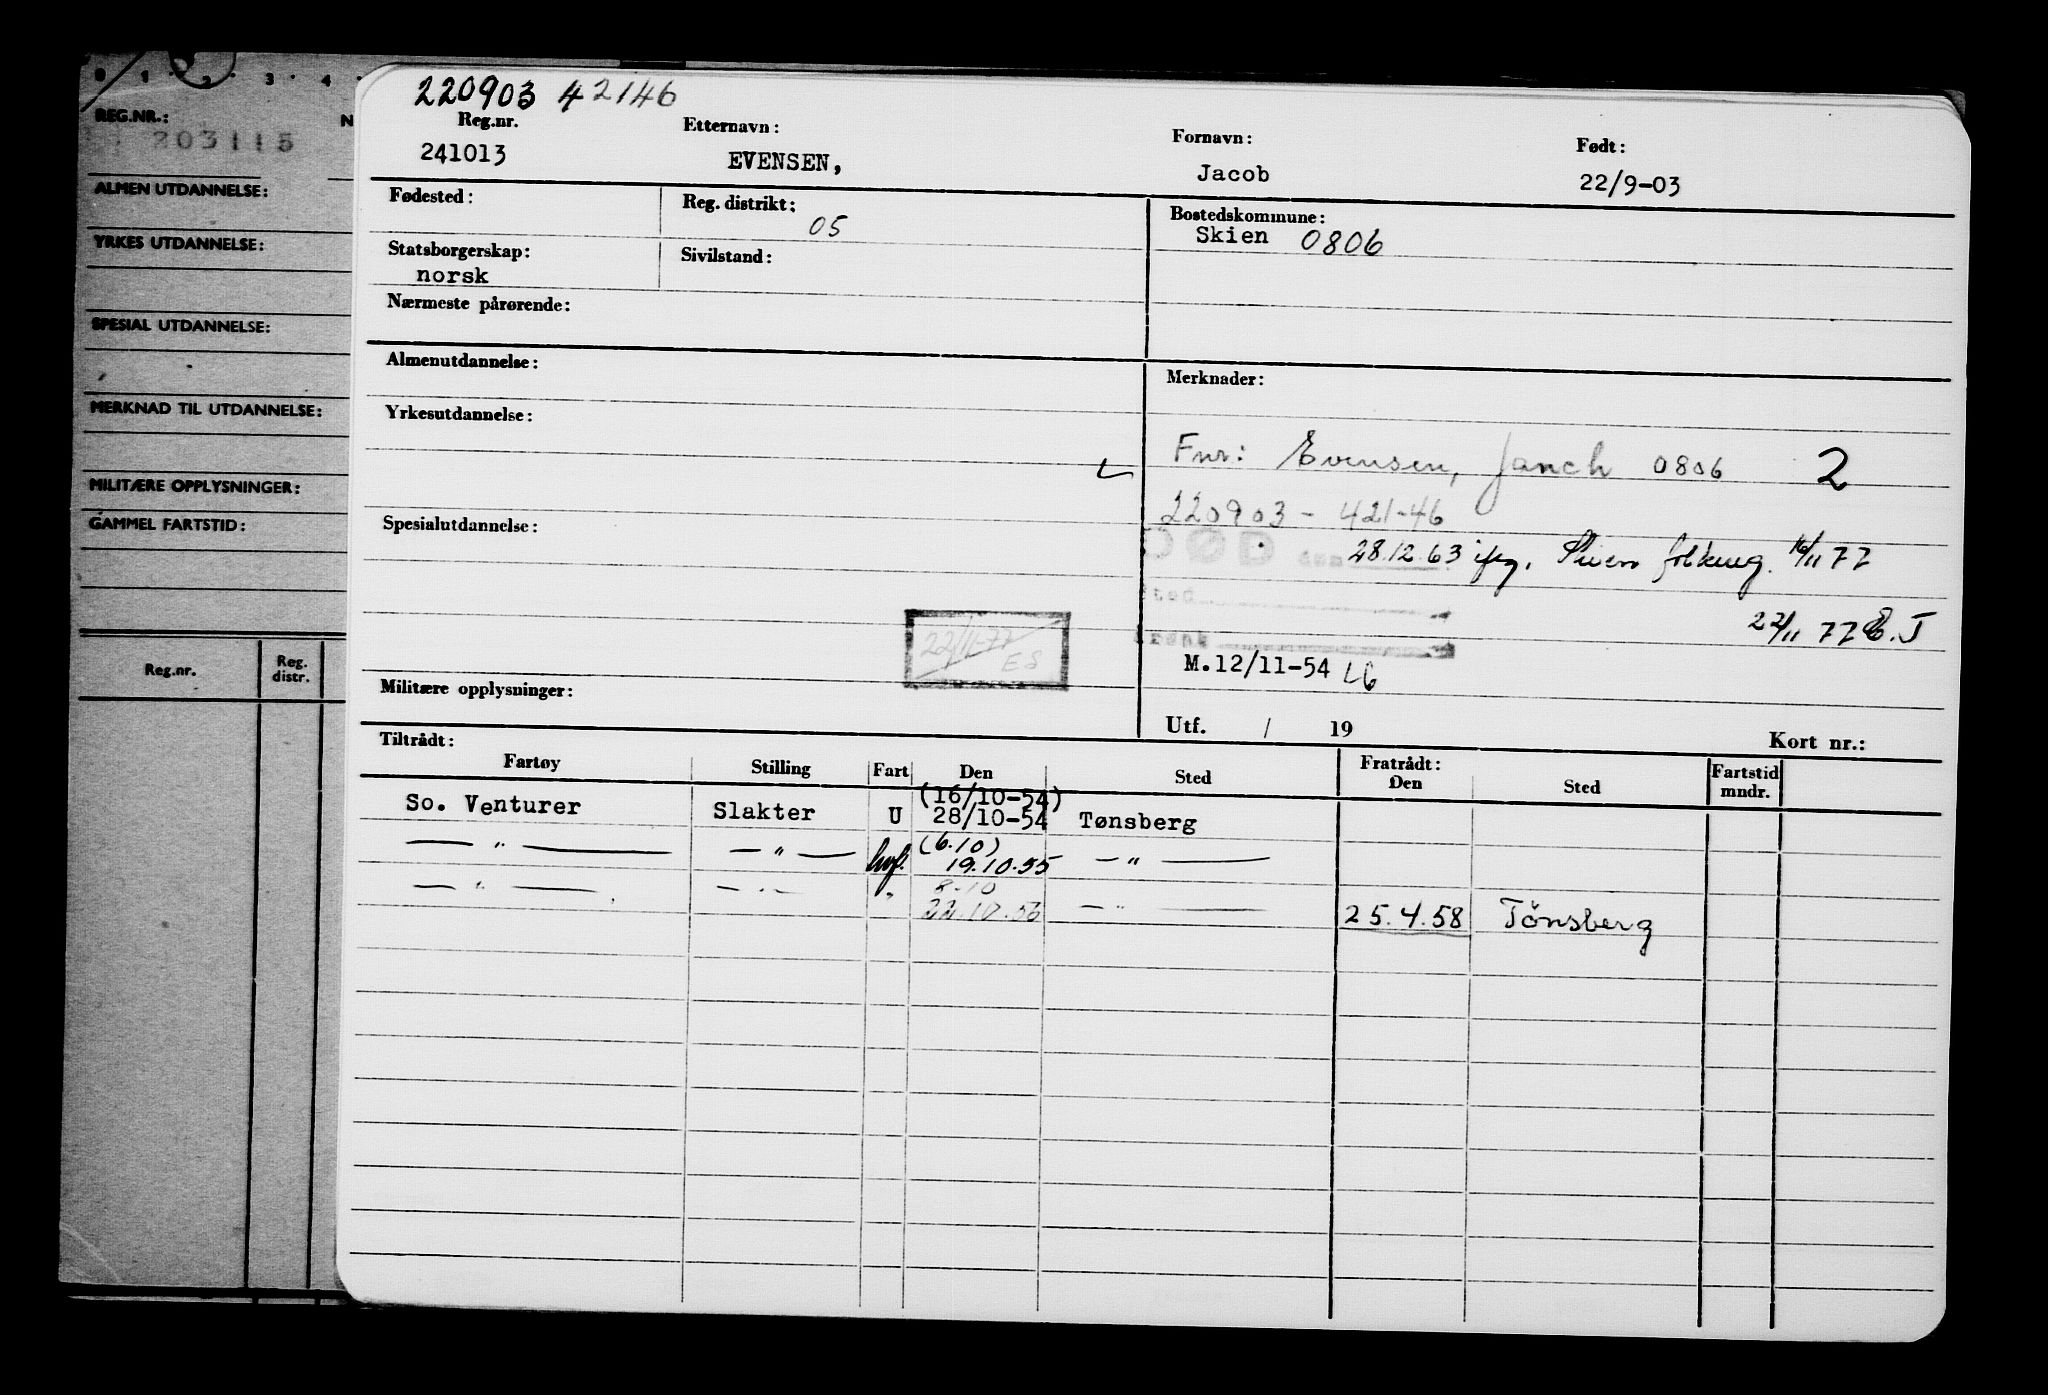 0 1 2 3 4
REG.NR.: N
203115
ALMEN UTDANNELSE:
YRKES UTDANNELSE:
SPESIAL UTDANNELSE:
MERKNAD TIL UTDANNELSE:
MILITÆRE OPPLYSNINGER:
GAMMEL FARTSTID:
Reg.nr. Reg. distr.
220903 42146
Reg.nr. Etternavn: Fornavn: Født:
241013 EVENSEN, Jacob 22/9-03
Fødested: Reg. distrikt: 05 Bostedskommune:
Skien 0806
Statsborgerskap: Sivilstand:
norsk
Nærmeste pårørende:
Almenutdannelse: Merknader:
Yrkesutdannelse:
Fnr: Evensen, Janch 0806 2
220903 - 421-46
Spesialutdannelse:
DØD den 28.12.63 ifg. Skien folkereg. 16/11 77
Sted
22/11 77 E.J
22/11-77
ES
M.12/11-54 LG
Militære opplysninger:
Utf. / 19 Kort nr.:
Tiltrådt: Fratrådt:
Fartøy Stilling Fart Den Sted Den Sted Fartstid mndr.
(16/10-54)
So. Venturer Slakter U 28/10-54 Tønsberg
(6.10)
— " — — " — hvf. 19.10.55 — " —
8-10
— " — — " — " 22.10.56 — " — 25.4.58 Tönsberg